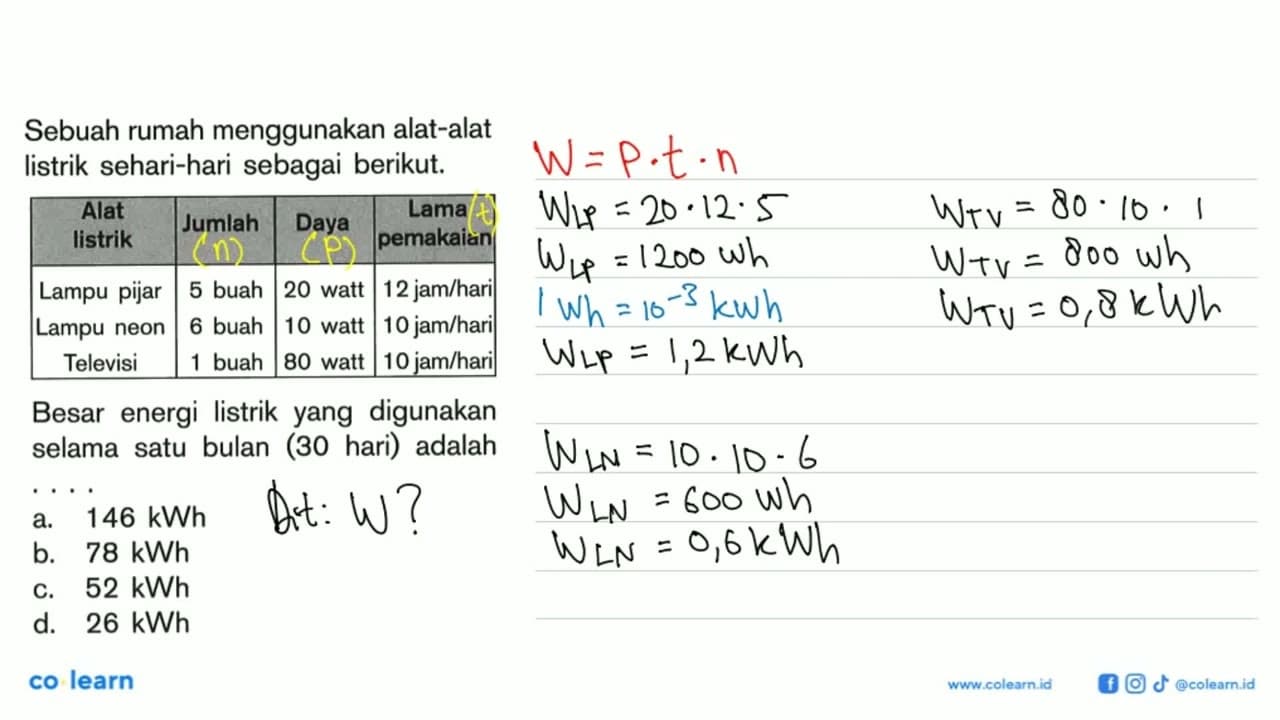 Sebuah rumah menggunakan alat-alat
listrik sehari-hari sebagai berikut.
Alat listrik Jumlah (n) Daya (P) Lama (t) pemakaian
Lampu pijar 5 buah 20 watt 12 jam/hari
Lampu neon 6 buah 10 watt 10 jam/hari
Televisi 1 buah 80 watt 10 jam/hari
Besar energi listrik yang digunakan
selama satu bulan (30 hari) adalah
. . . .
a. 146 kWh
b. 78 kWh
c. 52 kWh
d. 26 kWh
Dit: W?
W = P . t . n
WLP = 20 . 12 . 5
WLP = 1200 Wh
1 Wh = 10⁻³ kWh
WLP = 1,2 kWh
WLN = 10 . 10 . 6
WLN = 600 Wh
WLN = 0,6 kWh
WTV = 80 . 10 . 1
WTV = 800 Wh
WTV = 0,8 kWh
co learn
www.colearn.id
@colearn.id